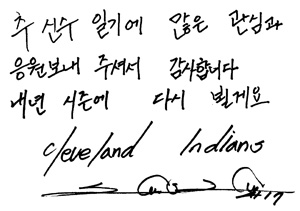 추 선수 일기에 많은 관심과
응원보내 주셔서 감사합니다
내년 시즌에 다시 뵐게요
Cleveland Indians
#17